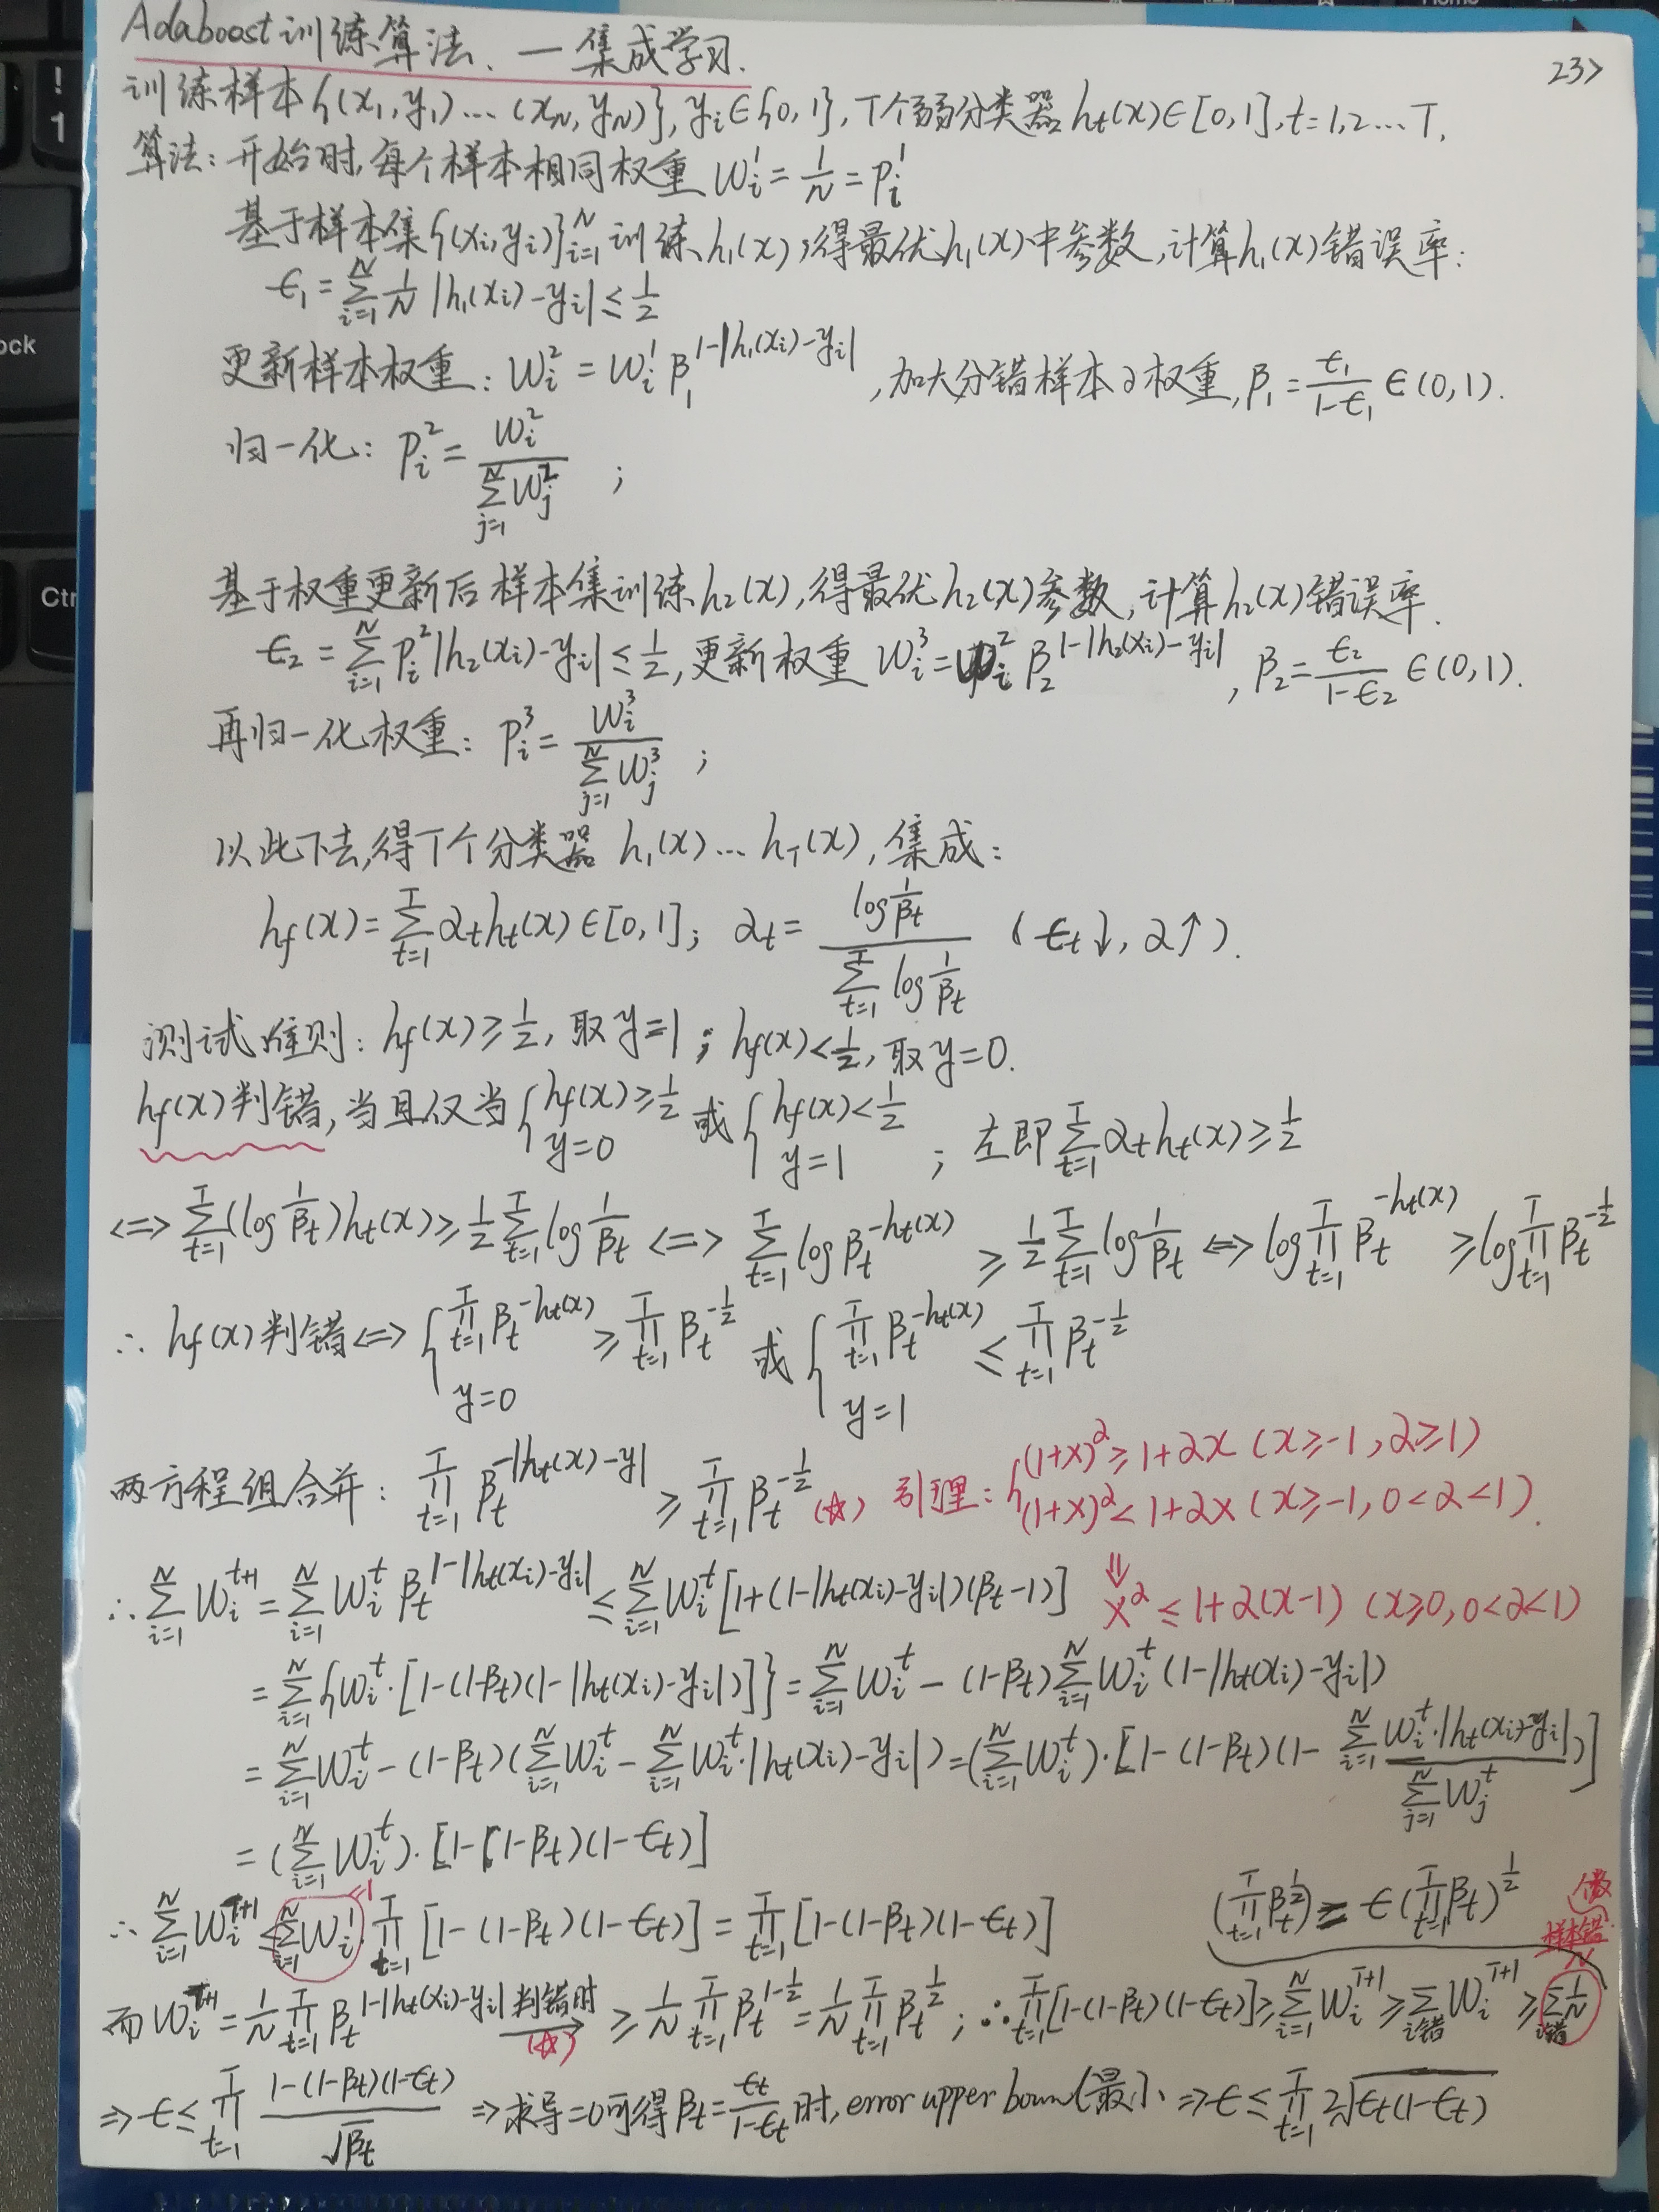 Adaboost训练算法. — 集成学习.
23>
训练样本{(x₁,y₁)…(x_N,y_N)}, y_i∈{0,1}, T个弱分类器h_t(x)∈[0,1], t=1,2…T.
算法: 开始时,每个样本相同权重 W_i^1 = 1/N = P_i^1
基于样本集{(x_i,y_i)}_{i=1}^N 训练h₁(x),得最优h₁(x)中参数,计算h₁(x)错误率:
ϵ₁ = Σ_{i=1}^N 1/N |h₁(x_i)-y_i| ≤ 1/2
更新样本权重: W_i^2 = W_i^1 β₁^{1-|h₁(x_i)-y_i|}, 加大分错样本的权重, β₁ = ϵ₁/(1-ϵ₁) ∈(0,1).
归一化: P_i^2 = W_i^2 / Σ_{j=1}^N W_j^2 ;
基于权重更新后样本集训练h₂(x),得最优h₂(x)参数,计算h₂(x)错误率.
ϵ₂ = Σ_{i=1}^N P_i^2 |h₂(x_i)-y_i| ≤ 1/2, 更新权重 W_i^3 = W_i^2 β₂^{1-|h₂(x_i)-y_i|}, β₂ = ϵ₂/(1-ϵ₂) ∈(0,1).
再归一化权重: P_i^3 = W_i^3 / Σ_{j=1}^N W_j^3 ;
以此下去,得T个分类器 h₁(x)…h_T(x), 集成:
h_f(x) = Σ_{t=1}^T α_t h_t(x) ∈[0,1]; α_t = log(1/β_t) / Σ_{t=1}^T log(1/β_t) (ϵ_t↓, α↑).
测试准则: h_f(x) ≥ 1/2, 取y=1; h_f(x) < 1/2, 取y=0.
h_f(x)判错, 当且仅当 { h_f(x) ≥ 1/2, y=0 或 { h_f(x) < 1/2, y=1 ; 左即 Σ_{t=1}^T α_t h_t(x) ≥ 1/2
<=> Σ_{t=1}^T (log 1/β_t) h_t(x) ≥ 1/2 Σ_{t=1}^T log 1/β_t <=> Σ_{t=1}^T log β_t^{-h_t(x)} ≥ 1/2 Σ_{t=1}^T log 1/β_t <=> log Π_{t=1}^T β_t^{-h_t(x)} ≥ log Π_{t=1}^T β_t^{-1/2}
∴ h_f(x)判错 <=> { Π_{t=1}^T β_t^{-h_t(x)} ≥ Π_{t=1}^T β_t^{-1/2}, y=0 或 { Π_{t=1}^T β_t^{-h_t(x)} ≤ Π_{t=1}^T β_t^{-1/2}, y=1
两方程组合并: Π_{t=1}^T β_t^{-|h_t(x)-y|} ≥ Π_{t=1}^T β_t^{-1/2} (☆) 引理: { (1+x)^α ≥ 1+αx (x≥-1, α≥1)
(1+x)^α < 1+αx (x≥-1, 0<α<1).
∴ Σ_{i=1}^N W_i^{t+1} = Σ_{i=1}^N W_i^t β_t^{1-|h_t(x_i)-y_i|} ≤ Σ_{i=1}^N W_i^t [1+(1-|h_t(x_i)-y_i|)(β_t-1)] ⇓ x^α ≤ 1+α(x-1) (x≥0, 0<α<1)
= Σ_{i=1}^N {W_i^t·[1-(1-β_t)(1-|h_t(x_i)-y_i|)]} = Σ_{i=1}^N W_i^t - (1-β_t) Σ_{i=1}^N W_i^t (1-|h_t(x_i)-y_i|)
= Σ_{i=1}^N W_i^t - (1-β_t)(Σ_{i=1}^N W_i^t - Σ_{i=1}^N W_i^t·|h_t(x_i)-y_i|) = (Σ_{i=1}^N W_i^t)·[1-(1-β_t)(1- Σ_{i=1}^N W_i^t·|h_t(x_i)-y_i| / Σ_{j=1}^N W_j^t)]
= (Σ_{i=1}^N W_i^t)·[1-(1-β_t)(1-ϵ_t)]
∴ Σ_{i=1}^N W_i^{T+1} ≤ Σ_{i=1}^N W_i^1 Π_{t=1}^T [1-(1-β_t)(1-ϵ_t)] = Π_{t=1}^T [1-(1-β_t)(1-ϵ_t)]
=1
(Π_{t=1}^T β_t^{1/2}) = ϵ(Π_{t=1}^T β_t)^{1/2}
样本错
N
而 W_i^{T+1} = 1/N Π_{t=1}^T β_t^{1-|h_t(x_i)-y_i|} 判错时 (☆) ≥ 1/N Π_{t=1}^T β_t^{1-1/2} = 1/N Π_{t=1}^T β_t^{1/2} ; ∴ Π_{t=1}^T [1-(1-β_t)(1-ϵ_t)] ≥ Σ_{i=1}^N W_i^{T+1} ≥ Σ_{i错} W_i^{T+1} ≥ Σ_{i错} 1/N
=> ϵ ≤ Π_{t=1}^T (1-(1-β_t)(1-ϵ_t))/√β_t => 求导=0可得β_t = ϵ_t/(1-ϵ_t) 时, error upper bound最小 => ϵ ≤ Π_{t=1}^T 2√(ϵ_t(1-ϵ_t))
Ctr
ock
!
1